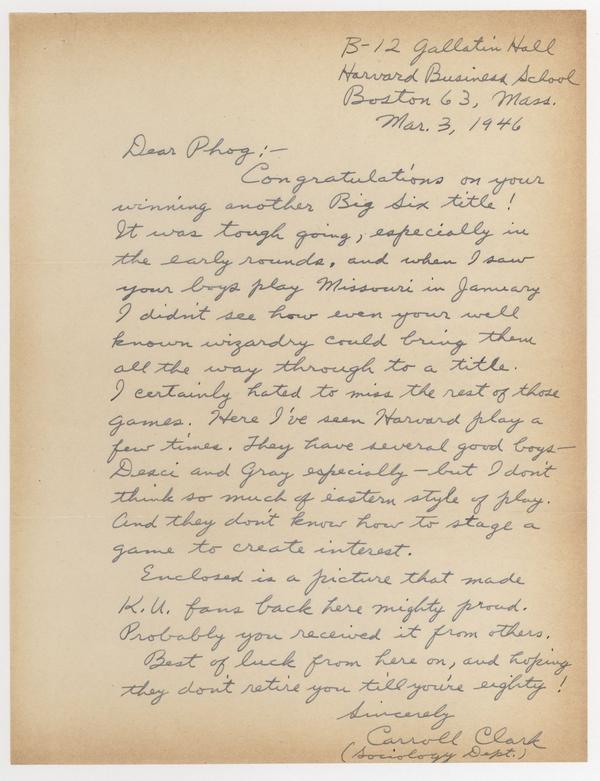 B-12 Gallatin Hall
Harvard Business School
Boston 63, Mass.
Mar. 3, 1946
Dear Phog:-
Congratulations on your
winning another Big Six title!
It was tough going, especially in
the early rounds, and when I saw
your boys play Missouri in January
I didn't see how even your well
known wizardry could bring them
all the way through to a title.
I certainly hated to miss the rest of those
games. Here I've seen Harvard play a
few times. They have several good boys—
Desci and Gray especially — but I don't
think so much of eastern style of play.
And they don't know how to stage a
game to create interest.
Enclosed is a picture that made
K.U. fans back here mighty proud.
Probably you received it from others.
Best of luck from here on, and hoping
they don't retire you till you're eighty!
Sincerely
Carroll Clark
(Sociology Dept.)